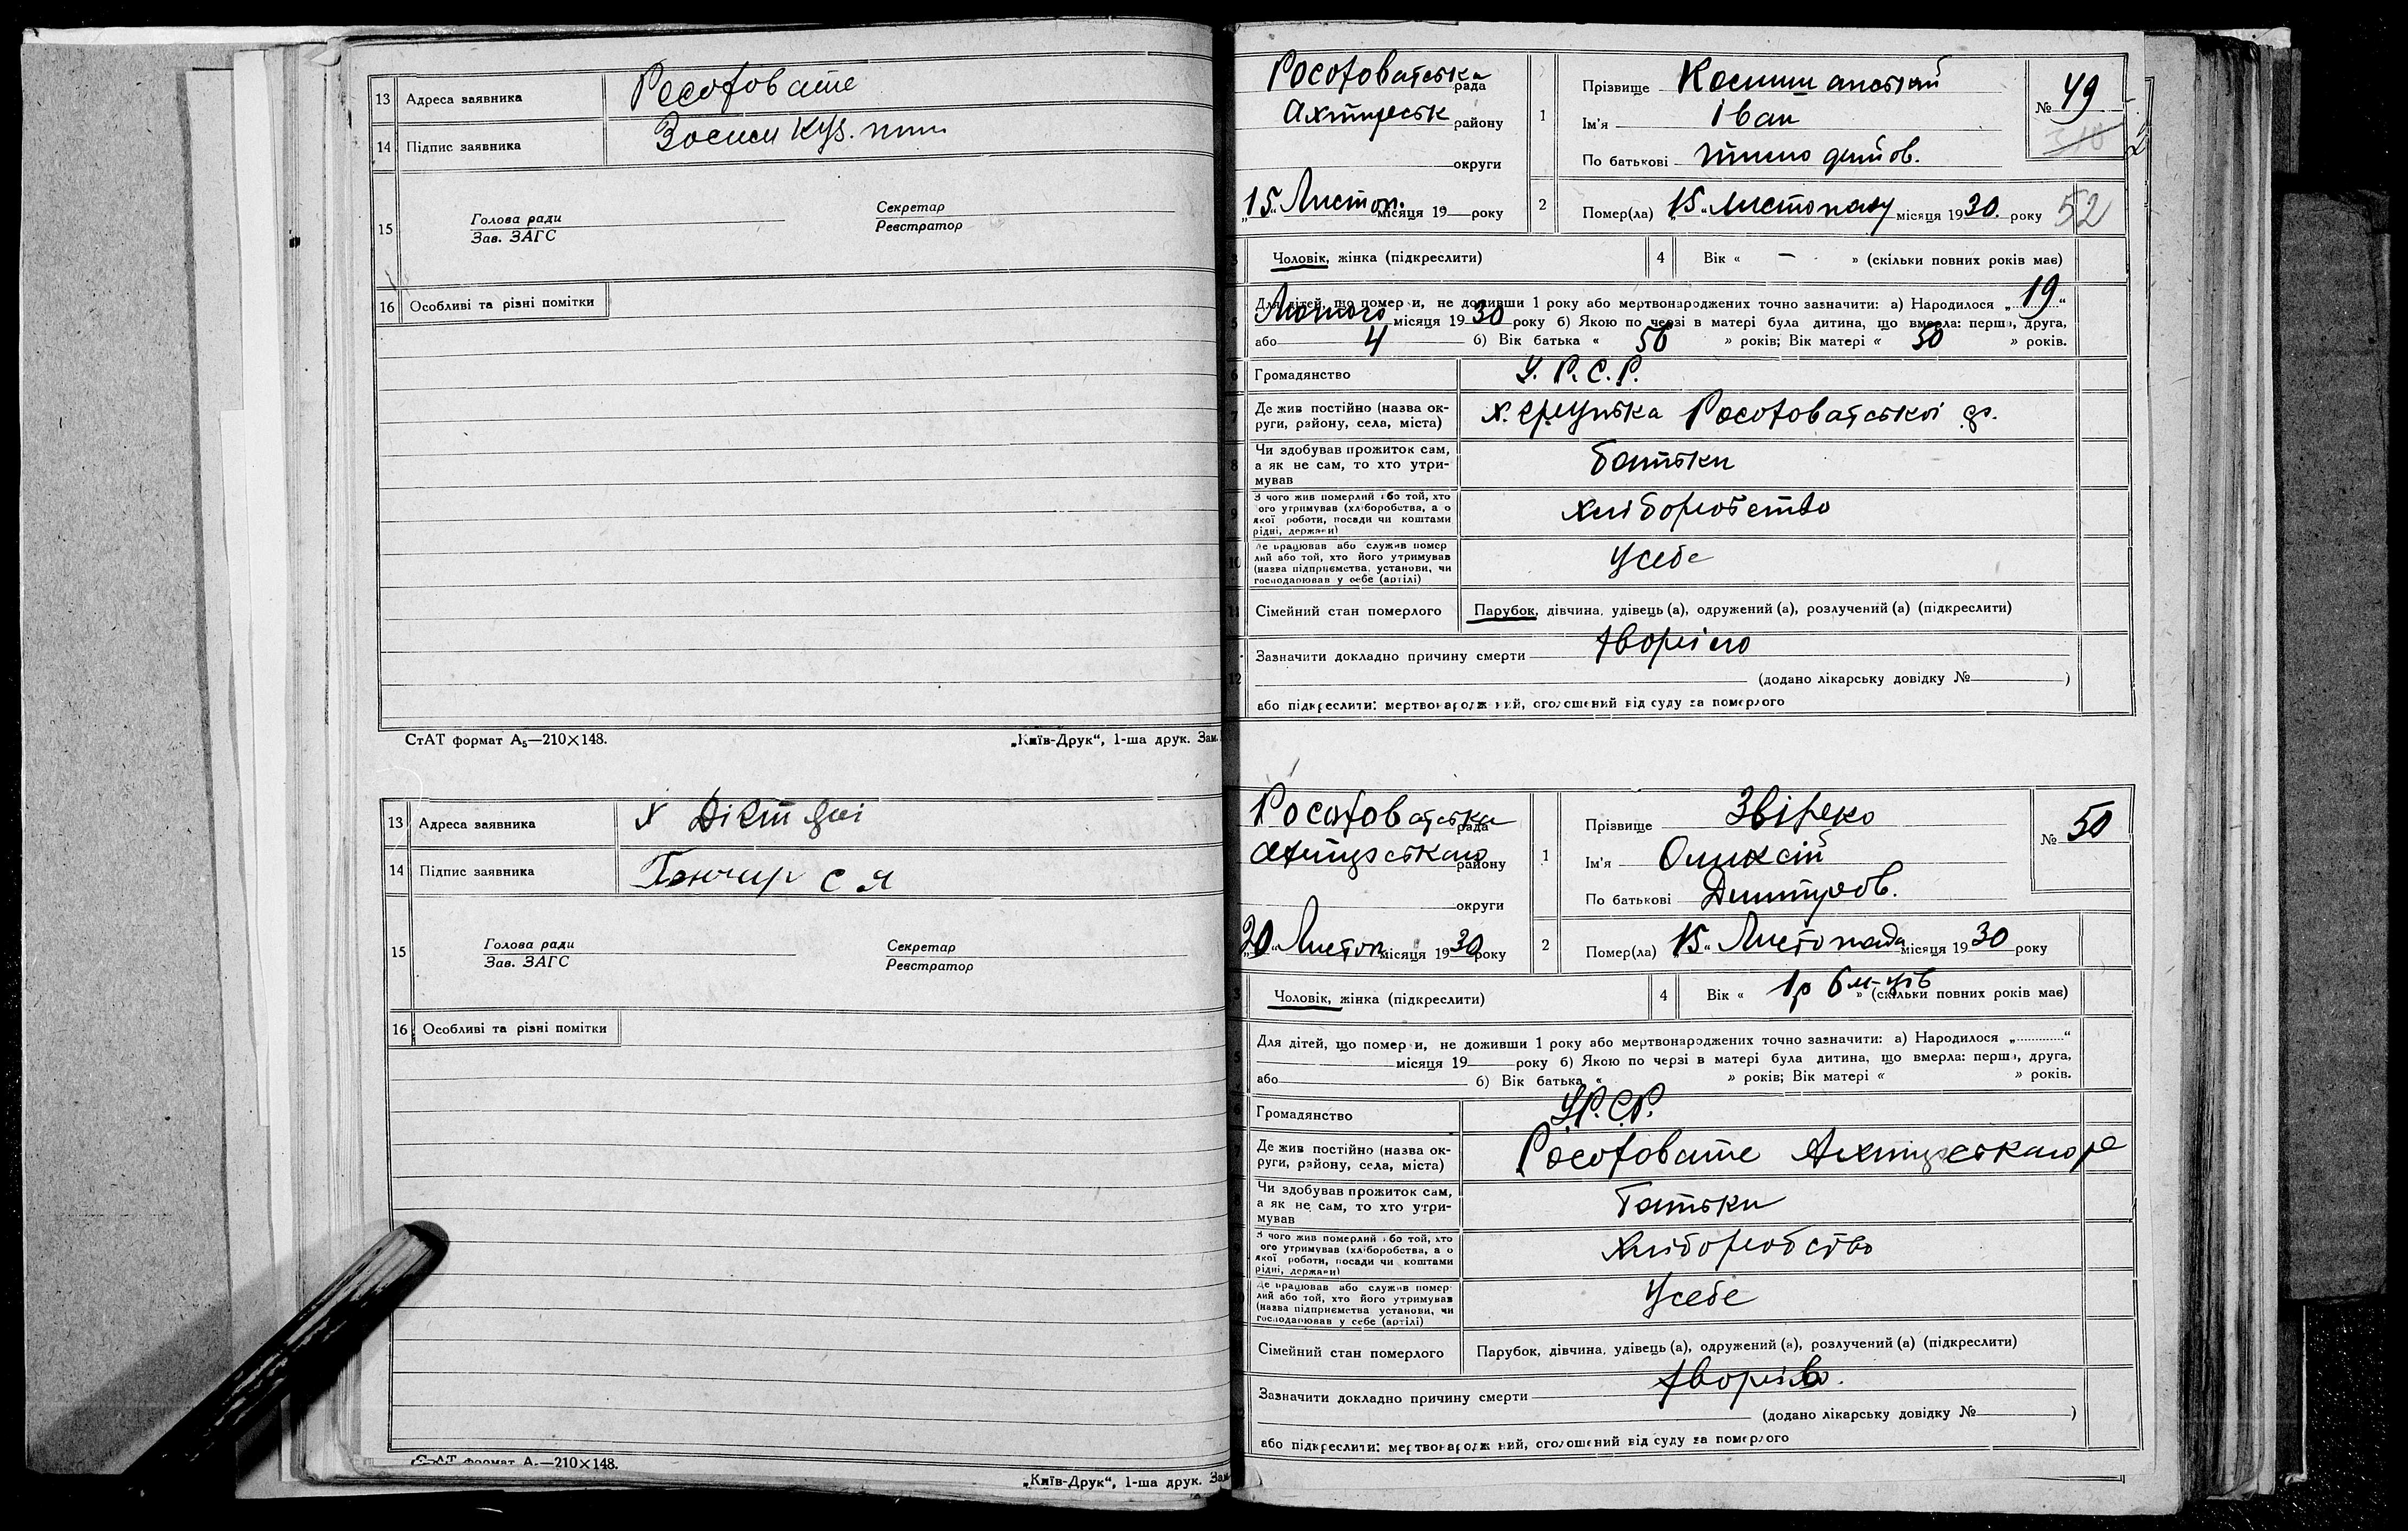 13 Адреса заявника Рософовате
14 Підпис заявника Зосим Куз.
15 Голова ради Секретар
Зав. ЗАГС Реєстратор
16 Особливі та різні помітки
СтАТ формат А5—210×148. „Київ-Друк“, 1-ша друк. Зам.
13 Адреса заявника Х
14 Підпис заявника Гончар С Я
15 Голова ради Секретар
Зав. ЗАГС Реєстратор
16 Особливі та різні помітки
СтАТ формат А5—210×148.
„Київ-Друк“, 1-ша друк. Зам
Рософоватська рада
Ахтирськ району
округи
„15“ Листоп. місяця 19 року
1 Прізвище
Ім'я Іван
По батькові
№ 49
310
2 Помер(ла) „15“ Листопаду місяця 1930 року 52
3 Чоловік, жінка (підкреслити) 4 Вік « — » (скільки повних років має)
5 Для дітей, що помер и, не доживши 1 року або мертвонароджених точно зазначити: а) Народилося „19“
Лютого місяця 1930 року б) Якою по черзі в матері була дитина, що вмерла: перша, друга,
або 4 б) Вік батька « 56 » років; Вік матері « 50 » років.
6 Громадянство У. Р. С. Р.
7 Де жив постійно (назва ок-
руги, району, села, міста) х. Рософоватської
8 Чи здобував прожиток сам,
а як не сам, то хто утри-
мував Батьки
9 З чого жив померлий або той, хто
ого утримував (хліборобства, а о
якої роботи, посади чи коштами
рідні, держави) Хліборобство
10 Де працював або служив помер
лий або той, хто його утримував
(назва підприємства, установи, чи
господарював у себе (артілі) Усебе
11 Сімейний стан померлого Парубок, дівчина, удівець (а), одружений (а), розлучений (а) (підкреслити)
12 Зазначити докладно причину смерти хворіло
(додано лікарську довідку № )
або підкреслити: мертвонародж ний, оголошений від суду за померлого
Рософоватська рада
Ахтирського району
округи
„20“ Листоп місяця 1930 року
1 Прізвище Звіреко
Ім'я Оликсій
По батькові Дмитров.
№ 50
2 Помер(ла) „15“ Листопада місяця 1930 року
3 Чоловік, жінка (підкреслити) 4 Вік « 1р 6 м-ців » (скільки повних років має)
5 Для дітей, що помер и, не доживши 1 року або мертвонароджених точно зазначити: а) Народилося „ “
місяця 19 року б) Якою по черзі в матері була дитина, що вмерла: перша, друга,
або б) Вік батька « » років; Вік матері « » років.
6 Громадянство У.Р.С.Р.
7 Де жив постійно (назва ок-
руги, району, села, міста) Рософовате Ахтирського р
Чи здобував прожиток сам,
а як не сам, то хто утри-
мував Батьки
9 З чого жив померлий або той, хто
ого утримував (хліборобства, а о
якої роботи, посади чи коштами
рідні, держави) Хліборобство
Де працював або служив помер
лий або той, хто його утримував
(назва підприємства установи, чи
господарював у себе (артілі) Усебе
Сімейний стан померлого Парубок, дівчина, удівець (а), одружений (а), розлучений (а) (підкреслити)
Зазначити докладно причину смерти хворіло.
(додано лікарську довідку № )
або підкреслити: мертвонародж ний, оголошений від суду за померлого